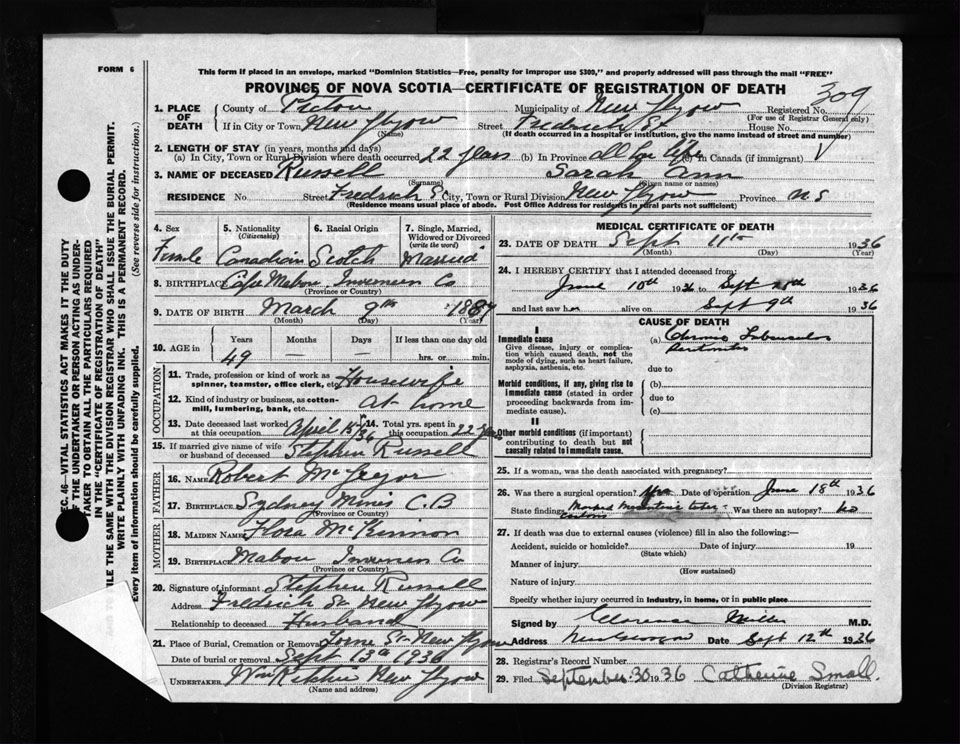 FORM 6
This form if placed in an envelope, marked "Dominion Statistics—Free, penalty for improper use $300," and properly addressed will pass through the mail "FREE"
PROVINCE OF NOVA SCOTIA—CERTIFICATE OF REGISTRATION OF DEATH
309
1. PLACE OF DEATH
County of Pictou Municipality of New Glgow Registered No.
(For use of Registrar General only)
If in City or Town New Glgow Street Fredrich St House No.
(Name) (If death occurred in a hospital or institution, give the name instead of street and number)
2. LENGTH OF STAY (in years, months and days)
(a) In City, Town or Rural Division where death occurred 22 years (b) In Province all her life (c) In Canada (if immigrant)
3. NAME OF DECEASED Russell Sarah Ann
(Surname) (Given name or names)
RESIDENCE No. Street Fredrich St City, Town or Rural Division New Glgow Province N S
(Residence means usual place of abode. Post Office Address for residents in rural parts not sufficient)
4. Sex 5. Nationality (Citizenship) 6. Racial Origin 7. Single, Married, Widowed or Divorced (write the word)
Female Canadian Scotch Married
8. BIRTHPLACE Cape Mabou Inverness Co
(Province or Country)
9. DATE OF BIRTH March 9th 1887
(Month) (Day) (Year)
10. AGE in Years Months Days If less than one day old
49 — — hrs. or min.
OCCUPATION
11. Trade, profession or kind of work as spinner, teamster, office clerk, etc. Housewife
12. Kind of industry or business, as cotton-mill, lumbering, bank, etc. at home
13. Date deceased last worked at this occupation April 15th 36 14. Total yrs. spent in this occupation 22 years
15. If married give name of wife or husband of deceased Stephen Russell
FATHER
16. NAME Robert McGregor
17. BIRTHPLACE Sydney Mines C.B
(Province or Country)
MOTHER
18. MAIDEN NAME Flora McKinnon
19. BIRTHPLACE Mabou Inverness Co
(Province or Country)
20. Signature of informant Stephen Russell
Address Fredrich St New Glgow
Relationship to deceased Husband
21. Place of Burial, Cremation or Removal Lorne St New Glgow
Date of burial or removal Sept 13th 1936
UNDERTAKER Wm Ritchie New Glgow
(Name and address)
MEDICAL CERTIFICATE OF DEATH
23. DATE OF DEATH Sept 11th 1936
(Month) (Day) (Year)
24. I HEREBY CERTIFY that I attended deceased from:
June 10th 1936 to Sept 1936
and last saw her alive on Sept 9th 1936
CAUSE OF DEATH
I
Immediate cause
Give disease, injury or complication which caused death, not the mode of dying, such as heart failure, asphyxia, asthenia, etc.
(a) Chronic Tuberculos Peritonitis
due to
Morbid conditions, if any, giving rise to immediate cause (stated in order proceeding backwards from immediate cause).
(b)
due to
(c)
II
Other morbid conditions (if important) contributing to death but not causally related to immediate cause.
25. If a woman, was the death associated with pregnancy?
26. Was there a surgical operation? Yes Date of operation June 18th 1936
State findings Was there an autopsy? No
27. If death was due to external causes (violence) fill in also the following:—
Accident, suicide or homicide? Date of injury 19
(State which)
Manner of injury
(How sustained)
Nature of injury
Specify whether injury occurred in industry, in home, or in public place
Signed by Clarence Miller M.D.
Address New Glasgow Date Sept 12th 1936
28. Registrar's Record Number
29. Filed September 30 1936 Catherine Small.
(Division Registrar)
SEC. 46—VITAL STATISTICS ACT MAKES IT THE DUTY
OF THE UNDERTAKER OR PERSON ACTING AS UNDERTAKER TO OBTAIN ALL THE PARTICULARS REQUIRED
IN THE "CERTIFICATE OF REGISTRATION OF DEATH"
AND TO FILE THE SAME WITH THE DIVISION REGISTRAR WHO SHALL ISSUE THE BURIAL PERMIT.
WRITE PLAINLY WITH UNFADING INK. THIS IS A PERMANENT RECORD.
Every item of information should be carefully supplied. (See reverse side for instructions.)